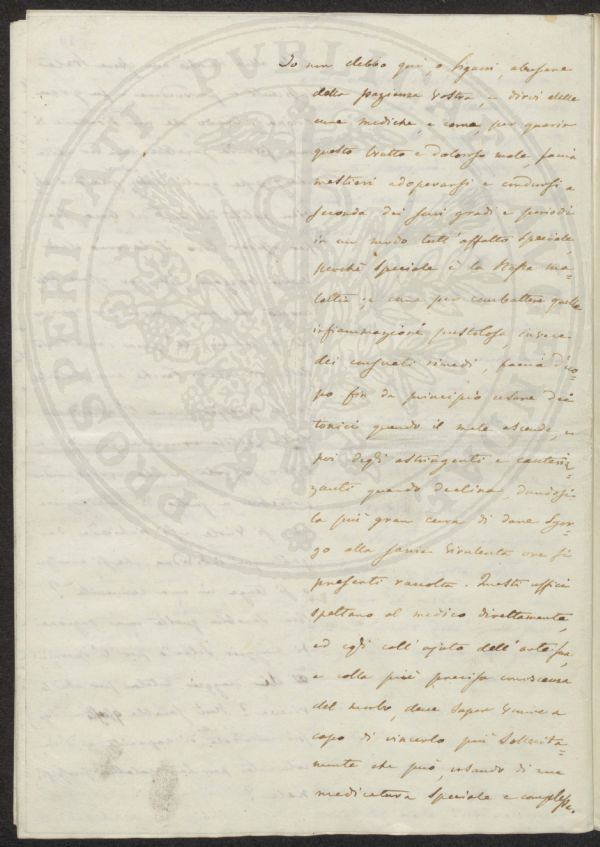 Io non debbo qui, o Signori, abusare
della pazienza vostra, e dirvi delle
cure mediche, e come, per guarir
questo brutto e doloroso male, faccia
mestieri adoperarsi e condursi a
seconda dei suoi gradi e periodi
in un modo tutt'affatto speciale,
perchè speciale è la stessa ma=
lattia, e come per combattere quella
infiammazione pustolosa, invece
dei consueti rimedi, faccia d'uo=
po fin da principio usare dei
tonici quando il male ascende, e
poi degli astringenti e cauteriz=
zanti quando declina, dandosi
la più gran cura di dare sgor=
go alla sanie virulenta ove si
presenti raccolta. Questi uffici
spettano al medico direttamente,
ed egli coll'ajuto dell'arte sua,
e colla più precisa conoscenza
del morbo, deve saper venire a
capo di vincerlo più sollecita=
mente che può, usando di una
medicatura speciale e complessa.
PROSPERITATI PVBLICAE